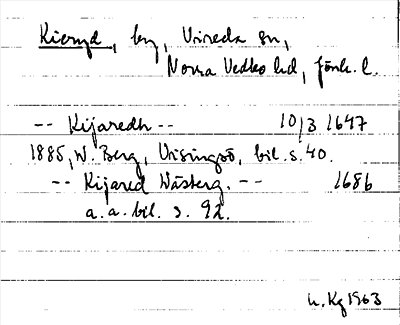 Kieryd, by, Vireda sn,
Norra Vedbo hd, Jönk. l.
-- Kijaredh -- 10/3 1647
1885, W. Berg, Visingsö, bil. s. 40.
-- Kijared Wästerg. -- 1686
a. a. bil. s. 92.
h. Kg 1963